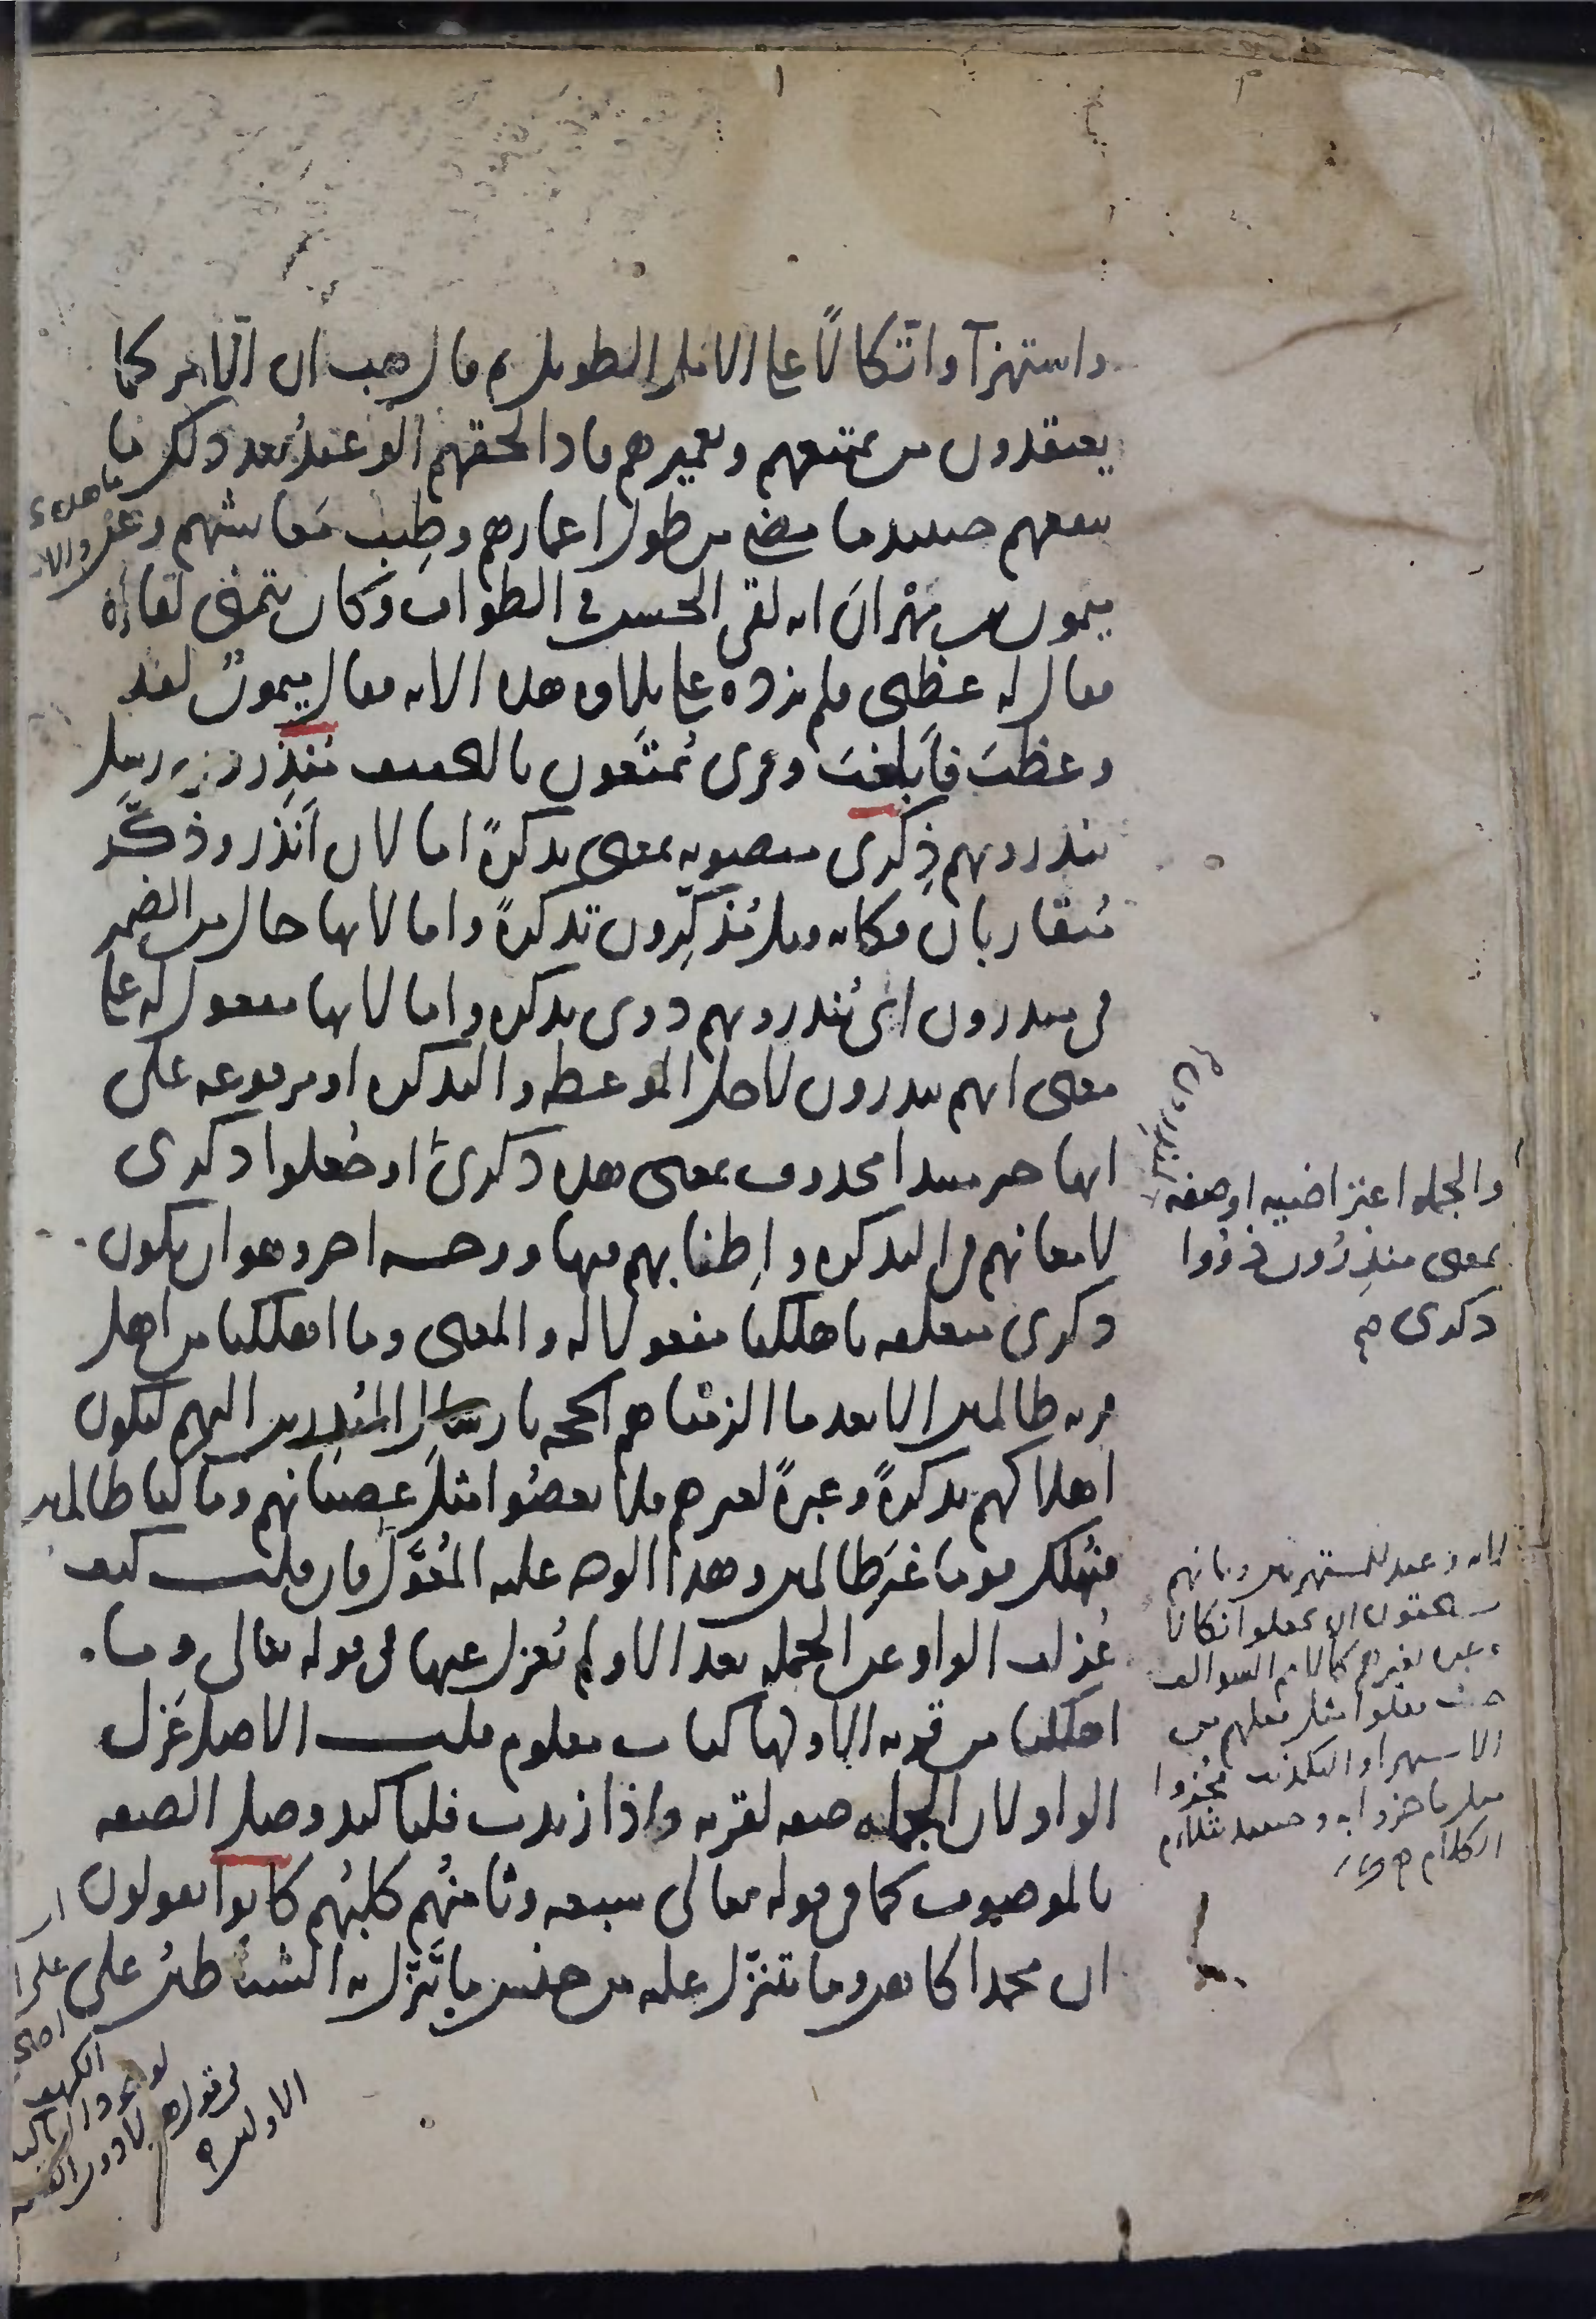 واستهزآ واتّكالًا على الامل الطويل ثم قال هب ان الامر كما
يعتقدون من تمتيعهم وتعميرهم فاذا لحقهم الوعيدُ بعد ذلك ما
ينفعهم حينئذ ما مضى من طول اعمارهم وطِيب مَعايشهم وعن
ميمون بن مِهْرانَ انه لقى الحسن في الطواف وكان يتمنى لقاءَه
فقال له عظنى فلم يزده على تلاوة هذه الآيه فقال ميمونٌ لقد
وعظتَ فأبلغتَ وقرى يُمتَعون بالتخفيف مُنذِرون رسل
ينذرونهم ذِكرى منصوبه بمعنى تذكرةً اما لان أنذر وذكَّر
مُتقاربان فكانه قيل مُذكِّرون تذكرةً واما لانها حال من الضمير
فى منذرون اى يُنذرونهم ذوى تذكرة واما لانها مفعول له على
معنى انهم ينذرون لاجل الموعظه والتذكره او مرفوعه على
انها خبر مبتدا محذوف بمعنى هذه ذكرى او جُعلوا ذكرى
لامعانهم فى التذكره واِطنابهم فيها ووجـه اخر وهو ان يكون
ذكرى متعلقه باهلكنا مفعولا له والمعنى وما اهلكنا من اهل
قريه ظالمين الا بعد ما الزمناهم الحجه بارسال المُنذرين اليهم ليكون
اهلاكهم تذكرةً وعبرةً لغيرهم فلا يعصُوا مثلَ عِصيانهم وما كنا ظالمين
فنُهلك قوما غَيرَ ظالمين وهذا الوجه عليه المُعَوَّل فان قلت كيف
عُزلت الواو عن الجمله بعد الا ولم تُعزل عنها فى قوله تعالى وما
اهلكنا من قريه الا ولها كتاب معلوم قلت الاصل عَزل
الواو لان الجمله صفه لقريه واذا زيدت فلتاكيد وصل الصفه
بالموصوف كما فى قوله تعالى سبعه وثامنُهم كلبُهم كانوا يقولون
ان محمدا كاهن وما يتنزّل عليه من جنس ما يَتنزّل به الشياطين على
والجمله اعتراضيه او صفه
بمعنى منذِرُون ذوُوا
ذكرى
لانه وعيد للمستهزين وبانهم
يستحقون ان يجعلوا نكالا
وعبره لغيرهم كالامم السوالف
حيث فعلوا مثل فعلهم من
الاستهزا والتكذيب فجُوزوا
مثل ما جوزوا به وحينئذ يتلاءم
الكلام
الاولين